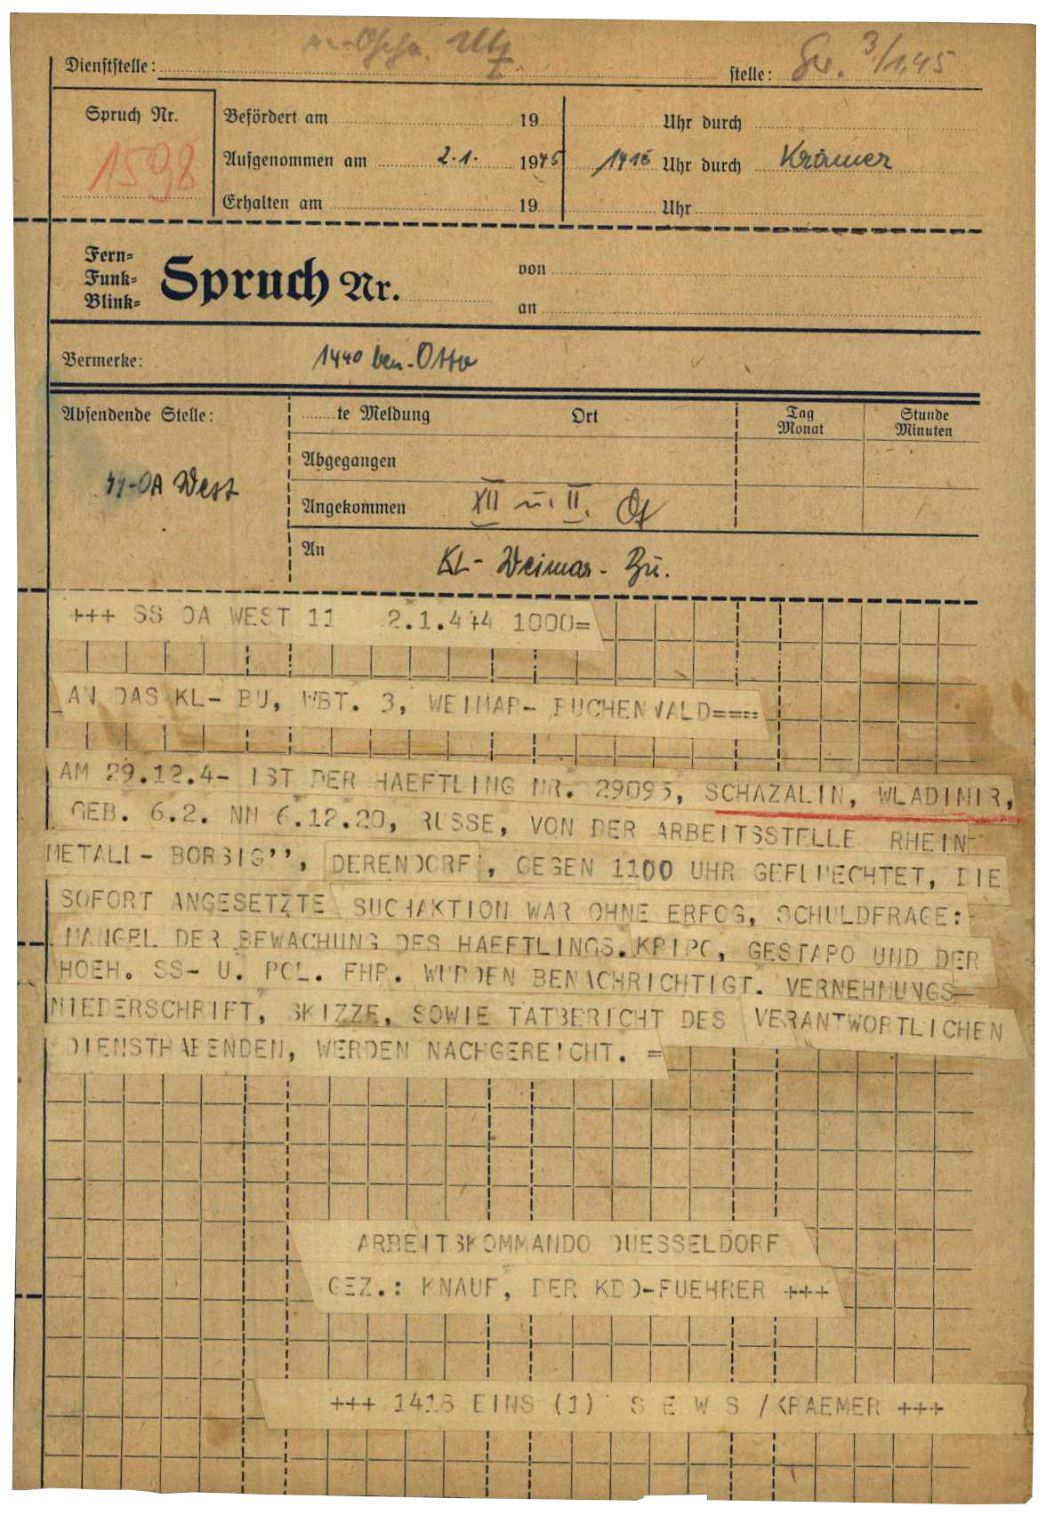 Dienststelle: stelle: 3/1.45
Spruch Nr. 1598
Befördert am 19 Uhr durch
Aufgenommen am 2.1. 1945 1418 Uhr durch Krämer
Erhalten am 19 Uhr
Fern-
Funk-
Blink-
Spruch Nr.
von
an
Vermerke: 1440 ben. Otto
Absendende Stelle: te Meldung Ort Tag Monat Stunde Minuten
Abgegangen
ϟϟ-OA West
Angekommen XII u. II.
An KL- Weimar- Bu.
+++ SS OA WEST 11 2.1.444 1000=
AN DAS KL- BU, ABT. 3, WEIMAR- BUCHENWALD====
AM 29.12.4- IST DER HAEFTLING NR. 29093, SCHAZALIN, WLADIMIR,
GEB. 6.2. NN 6.12.20, RUSSE, VON DER ARBEITSSTELLE RHEIN-
METALL- BORSIG'', DERENDORF, GEGEN 1100 UHR GEFLUECHTET, DIE
SOFORT ANGESETZTE SUCHAKTION WAR OHNE ERFOG, SCHULDFRAGE:
MANGEL DER BEWACHUNG DES HAEFTLINGS. KRIPO, GESTAPO UND DER
HOEH. SS- U. POL. FHR. WURDEN BENACHRICHTIGT. VERNEHMUNGS-
NIEDERSCHRIFT, SKIZZE, SOWIE TATBERICHT DES VERANTWORTLICHEN
DIENSTHABENDEN, WERDEN NACHGEREICHT. =
ARBEITSKOMMANDO DUESSELDORF
GEZ.: KNAUF, DER KDO-FUEHRER +++
+++ 1418 EINS (1) S E W S /KRAEMER +++